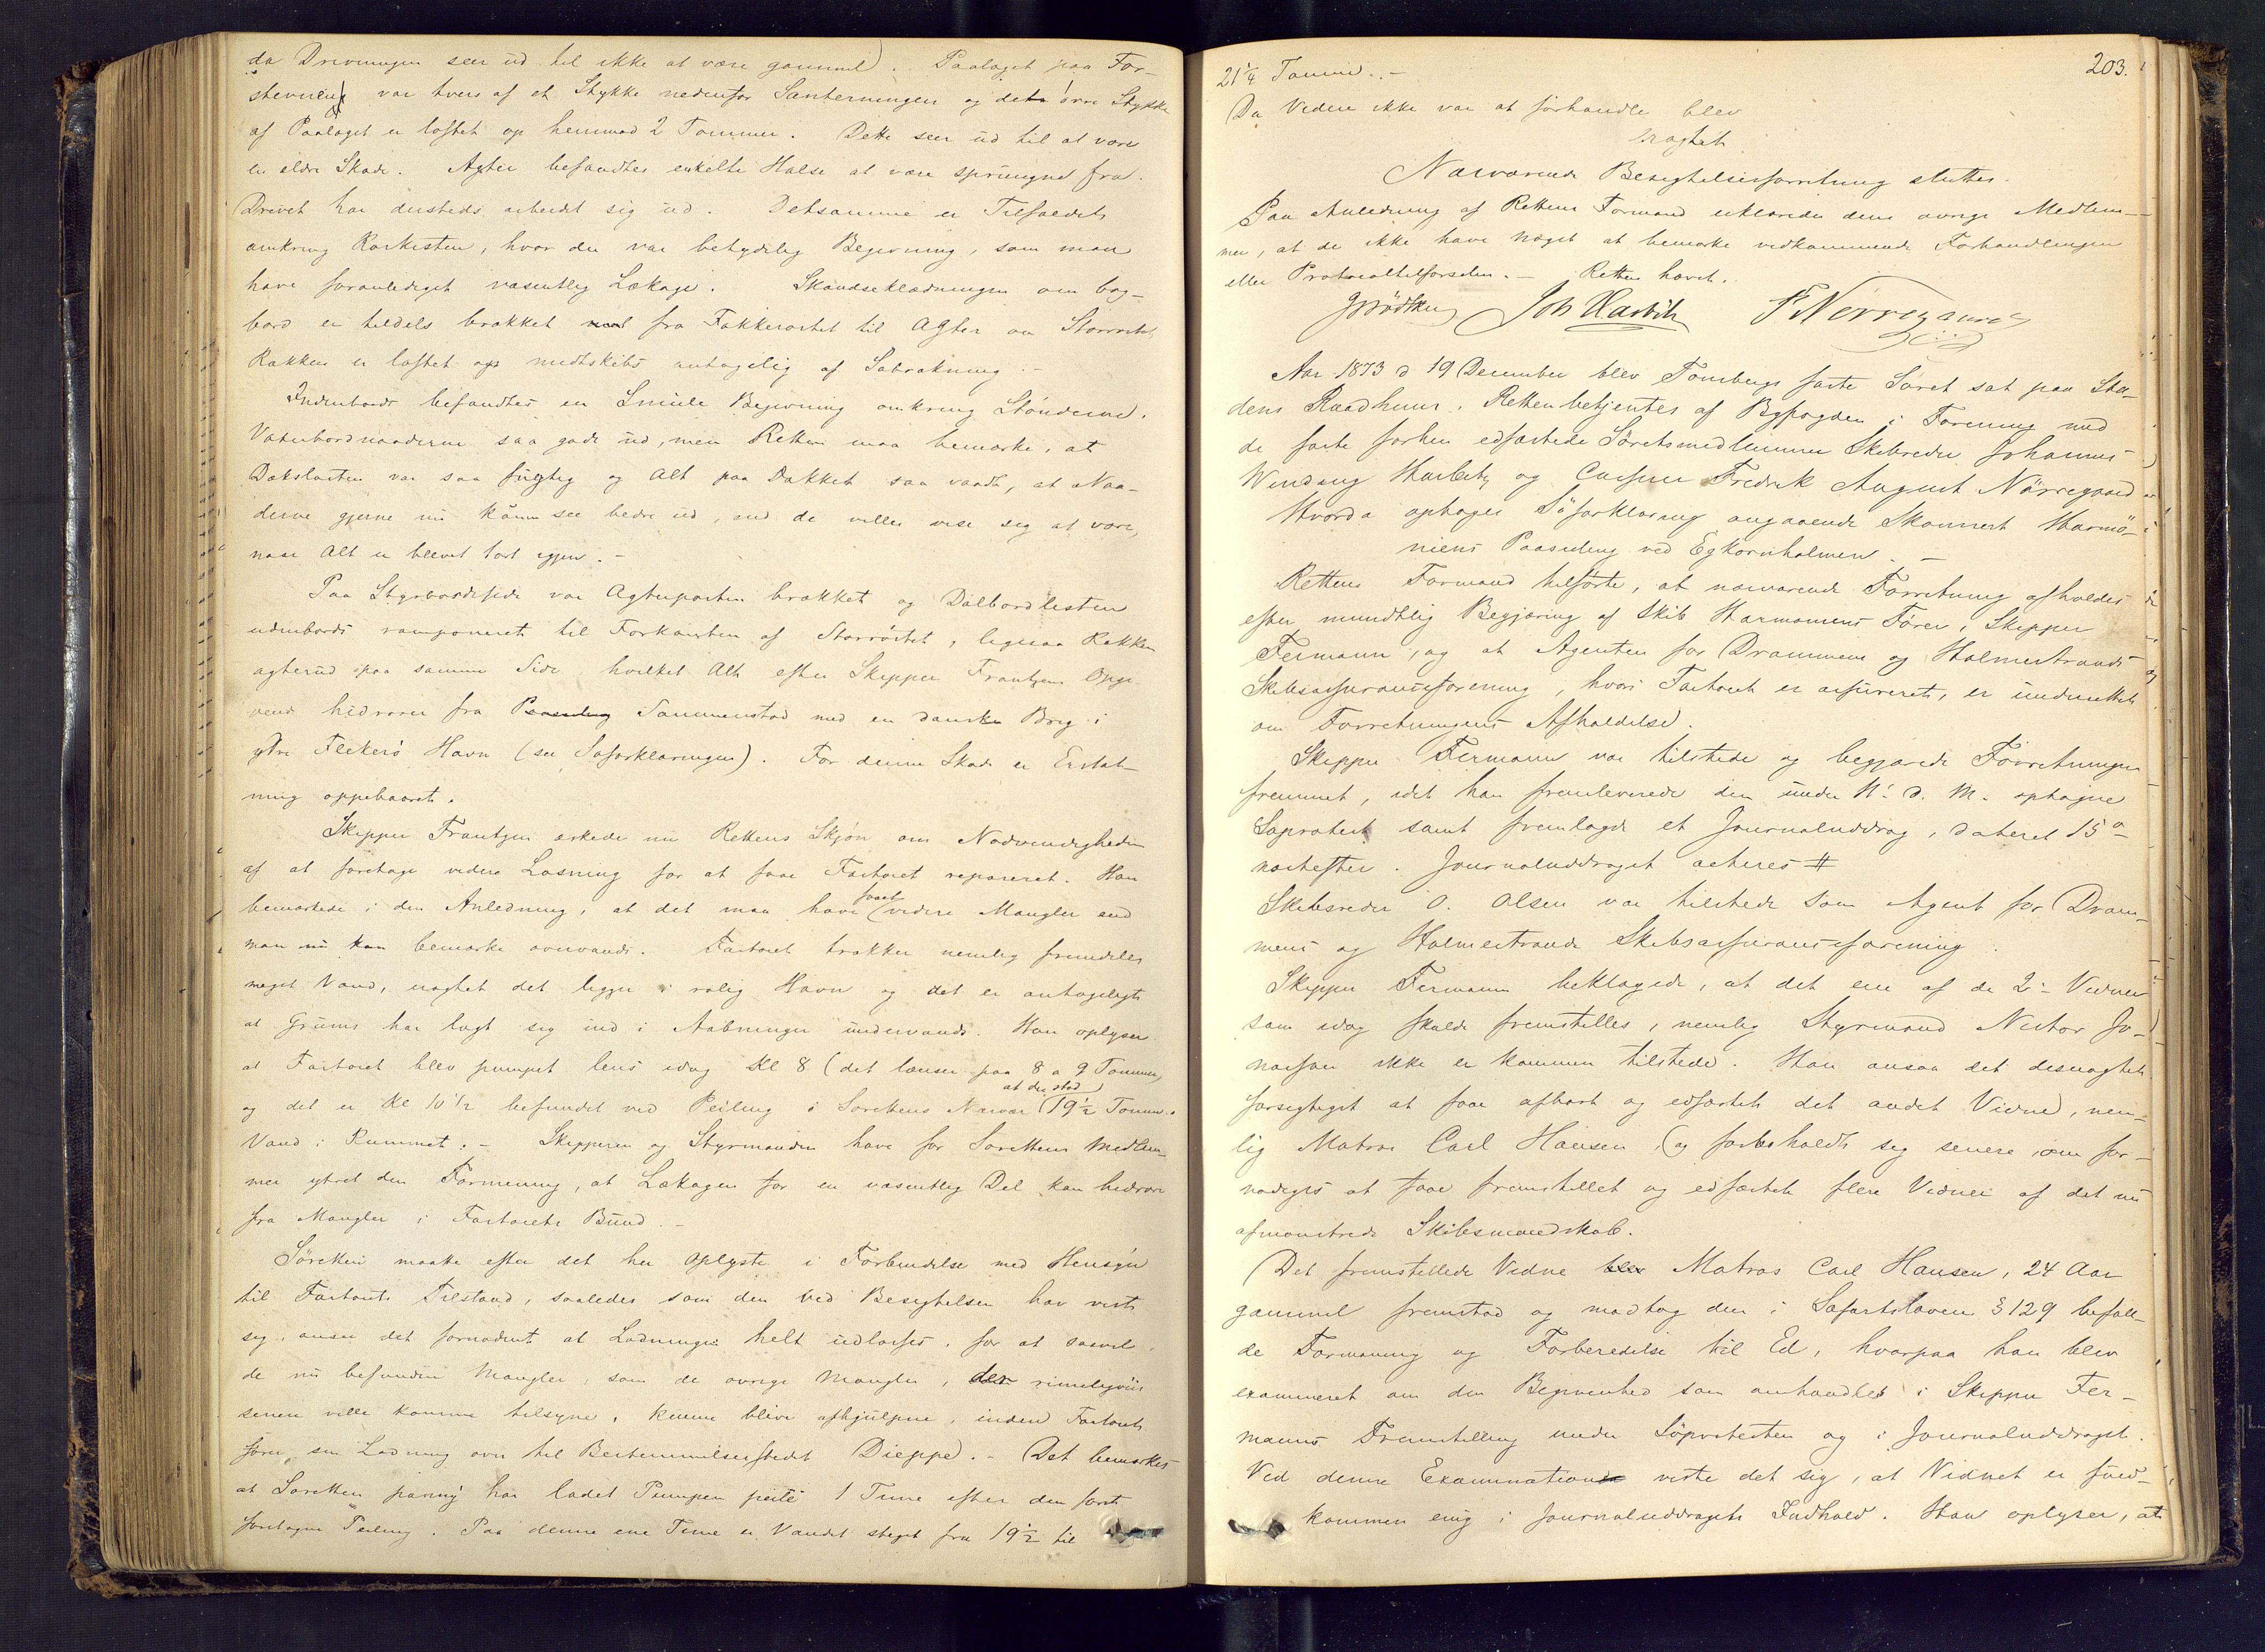 da Drivningen seer ud til ikke at være gammel. Paalaget paa For-
stevnen var tvers af et Stykke nedenfor Santerningen og det øvre Stykke
af Paalaget er løftet op henimod 2 Tommer. Dette seer ud til at være
en ældre Skade. Agter befandtes enkelte Halse at være sprungne fra.
Drevet har dersteds arbeidet sig ud. Detsamme er Tilfældet
omkring Rorkisten, hvor der var betydelig Begivning, som maa
have foranlediget væsentlig Lækage. Skandseklædningen om bag-
bord er tildels brækket fra Fokkerøstet til Agter om Storrøstet,
Rækken er løftet op midtskibs antagelig af Søbrækning. -
Indenbords befandtes en Smule Begivning omkring Stønderne.
Vaterbordnaaderne saa gode ud, men Retten maa bemærke, at
Dækslasten var saa fugtig og Alt paa Dækket saa vaadt, at Naa-
derne gjerne nu kunne see bedre ud, end de ville vise sig at være,
naar Alt er blevet tørt igjen. -
Paa Styrbordside var Agterporten brækket og Dalbordlisten
udenbords ramponeret til Forkanten af Storrøstet, ligesaa Rækken
agterud paa samme Side hvilket Alt efter Skipper Frantzens Opgi-
vend hidrører fra Sammenstød med en dansk Brig i
ydre Flekerø Havn (see Søforklaringen). For denne Skade er Erstat-
ning oppebaaret.
Skipper Frantzen æskede nu Rettens Skjøn om Nødvendigheden
af at foretage videre Losning for at faae Fartøiet repareret. Han
bemærkede i den Anledning, at det maa have faaet videre Mangler end
man nu kan bemærke overvands. Fartøiet trækker nemlig fremdeles
meget Vand, uagtet det ligger i rolig Havn og det er antageligt
at Grums har lagt sig ind i Aabninger undervands. Han oplyser
at Fartøiet blev pumpet lens idag Kl 8 (det lænser paa 8 a 9 Tommer)
og det er Kl 10 1/2 befundet ved Peiling i Sørettens Nærvær at der stod 19 1/2 Tomme
Vand i Rummet. - Skipperen og Styrmanden have for Sørettens Medlem-
mer ytret den Formening, at Lækagen for en væsentlig Del kan hidrøre
fra Mangler i Fartøiets Bund. -
Søretten maatte efter det her oplyste i Forbindelse med Hensyn
til Fartøiets Tilstand, saaledes som den ved Besigtelsen har viist
sig, ansee det fornødent at Ladningen helt udlosses, for at saavel
de nu befundne Mangler, som de øvrige Mangler, der rimeligviis
senere ville komme tilsyne, kunne blive afhjulpne, inden Fartøiet
fører sin Ladning over til Bestemmelsesstedet Dieppe. - Det bemærkes
at Søretten paany har ladet Pumpen peile 1 Time efter den først
foretagne Peiling. Paa denne ene Time er Vandet steget fra 19 1/2 til
203.
21 1/4 Tomme. -
Da Videre ikke var at forhandle blev
eragtet
Nærværende Besigtelsesforretning sluttes.
Paa Anledning af Rettens Formand erklærede dens øvrige Medlem-
mer, at de ikke have noget at bemærke vedkommende Forhandlingen
eller Protocoltilførselen. - Retten hævet.
Joh Harbitz F Nørregaard
Aar 1873 d 19 December blev Tønsbergs faste Søret sat paa Sta-
dens Raadhuus. Retten betjentes af Byfogden i Forening med
de faste forhen edfæstede Søretsmedlemmer Skibsreder Johannes
Wendwig Harbitz og Casper Fredrik August Nørregaard
Hvorda optages Søforklaring angaaende Skonnert Harmo-
niens Paaseiling ved Egkornholmen. -
Rettens Formand tilførte, at nærværende Forretning afholdes
efter mundtlig Begjæring af Skib Harmoniens Fører, Skipper
Fermann, og at Agenten for Drammens og Holmestrands
Skibsassuranceforening, hvori Fartøiet er assureret, er underrettet
om Forretningens Afholdelse.
Skipper Fermann var tilstede og begjærede Forretningen
fremmet, idet han fremleverede den under 11. d. M. optagne
Søprotest samt fremlagde et Journaluddrag, dateret 15de
næstefter. Journaluddraget acteres #
Skibsreder O. Olsen var tilstede som Agent for Dram-
mens og Holmestrands Skibsassuranceforening.
Skipper Fermann beklagede, at det ene af de 2de Vidner
som idag skulde fremstilles, nemlig Styrmand Nestor Jo-
nassen ikke er kommen tilstede. Han ansaa det desuagtet
forsigtigst at faae afhørt og edfæstet det andet Vidne, nem-
lig Matros Carl Hansen og forbeholdt sig senere om for-
nødiges at faae fremstillet og edfæstet flere Vidner af det nu
afmønstrede Skibsmandskab.
Det fremstillede Vidne Matros Carl Hansen, 24 Aar
gammel fremstod og modtog den i Søfartsloven § 129 befall-
de Formaning og Forberedelse til Ed, hvorpaa han blev
examineret om den Begivenhed som omhandles i Skipper Fer-
manns Fremstilling under Søprotesten og i Journaluddraget.
Ved denne Examination viste det sig, at Vidnet er fuld-
kommen enig i Journaluddragets Indhold. Han oplyser, at